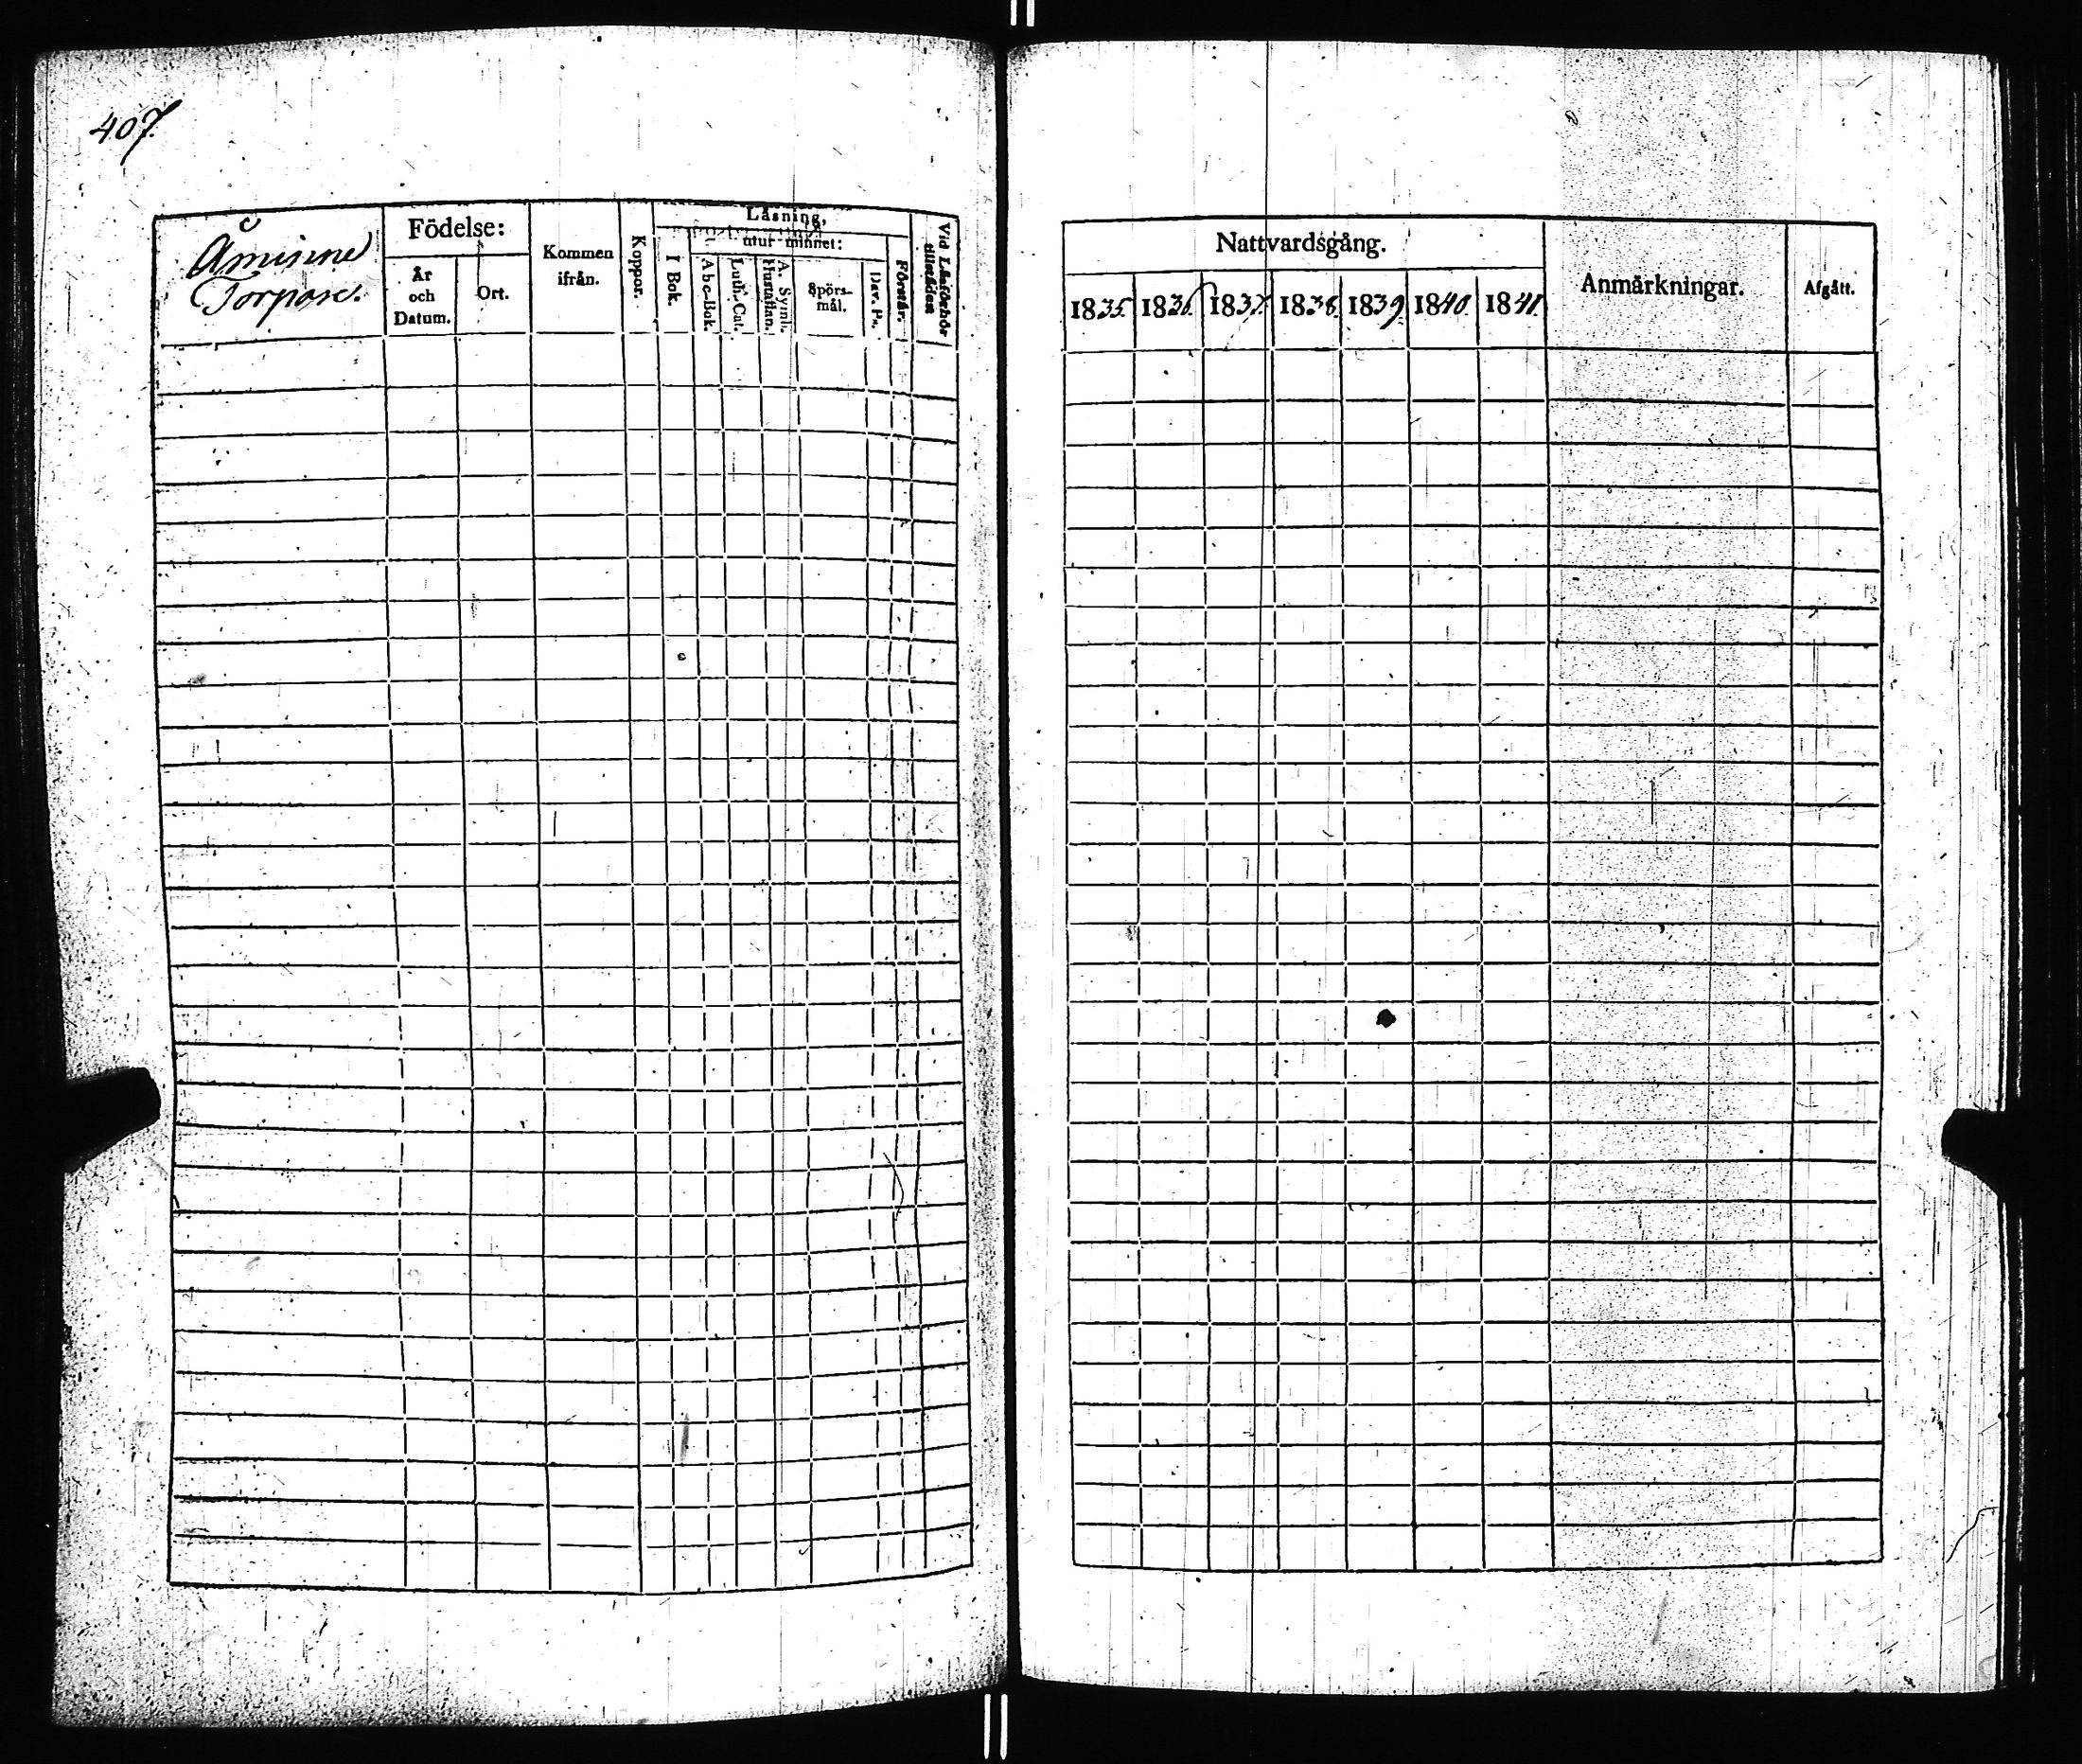 407.
Åminne
Torpare.
Födelse:
År
och
Datum.
Ort.
Kommen
ifrån.
Koppor.
Läsning,
I Bok.
utur minnet:
Abc-Bok.
Luth. Cat.
A. Symb.
Hustaflan.
Spörs-
mål.
Dav. Ps.
Förstår.
Vid Läsförhör
tillstädes
Nattvardsgång.
1835.
1836.
1837.
1838.
1839.
1840.
1841.
Anmärkningar.
Afgått.